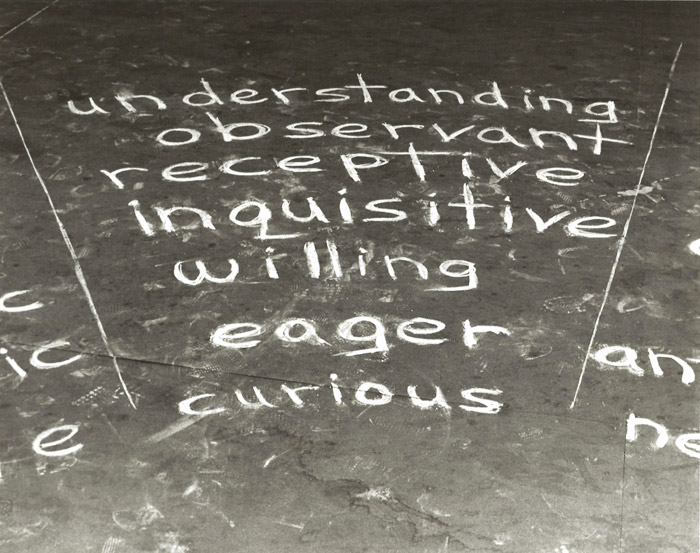 understanding
observant
receptive
inquisitive
willing
eager
curious